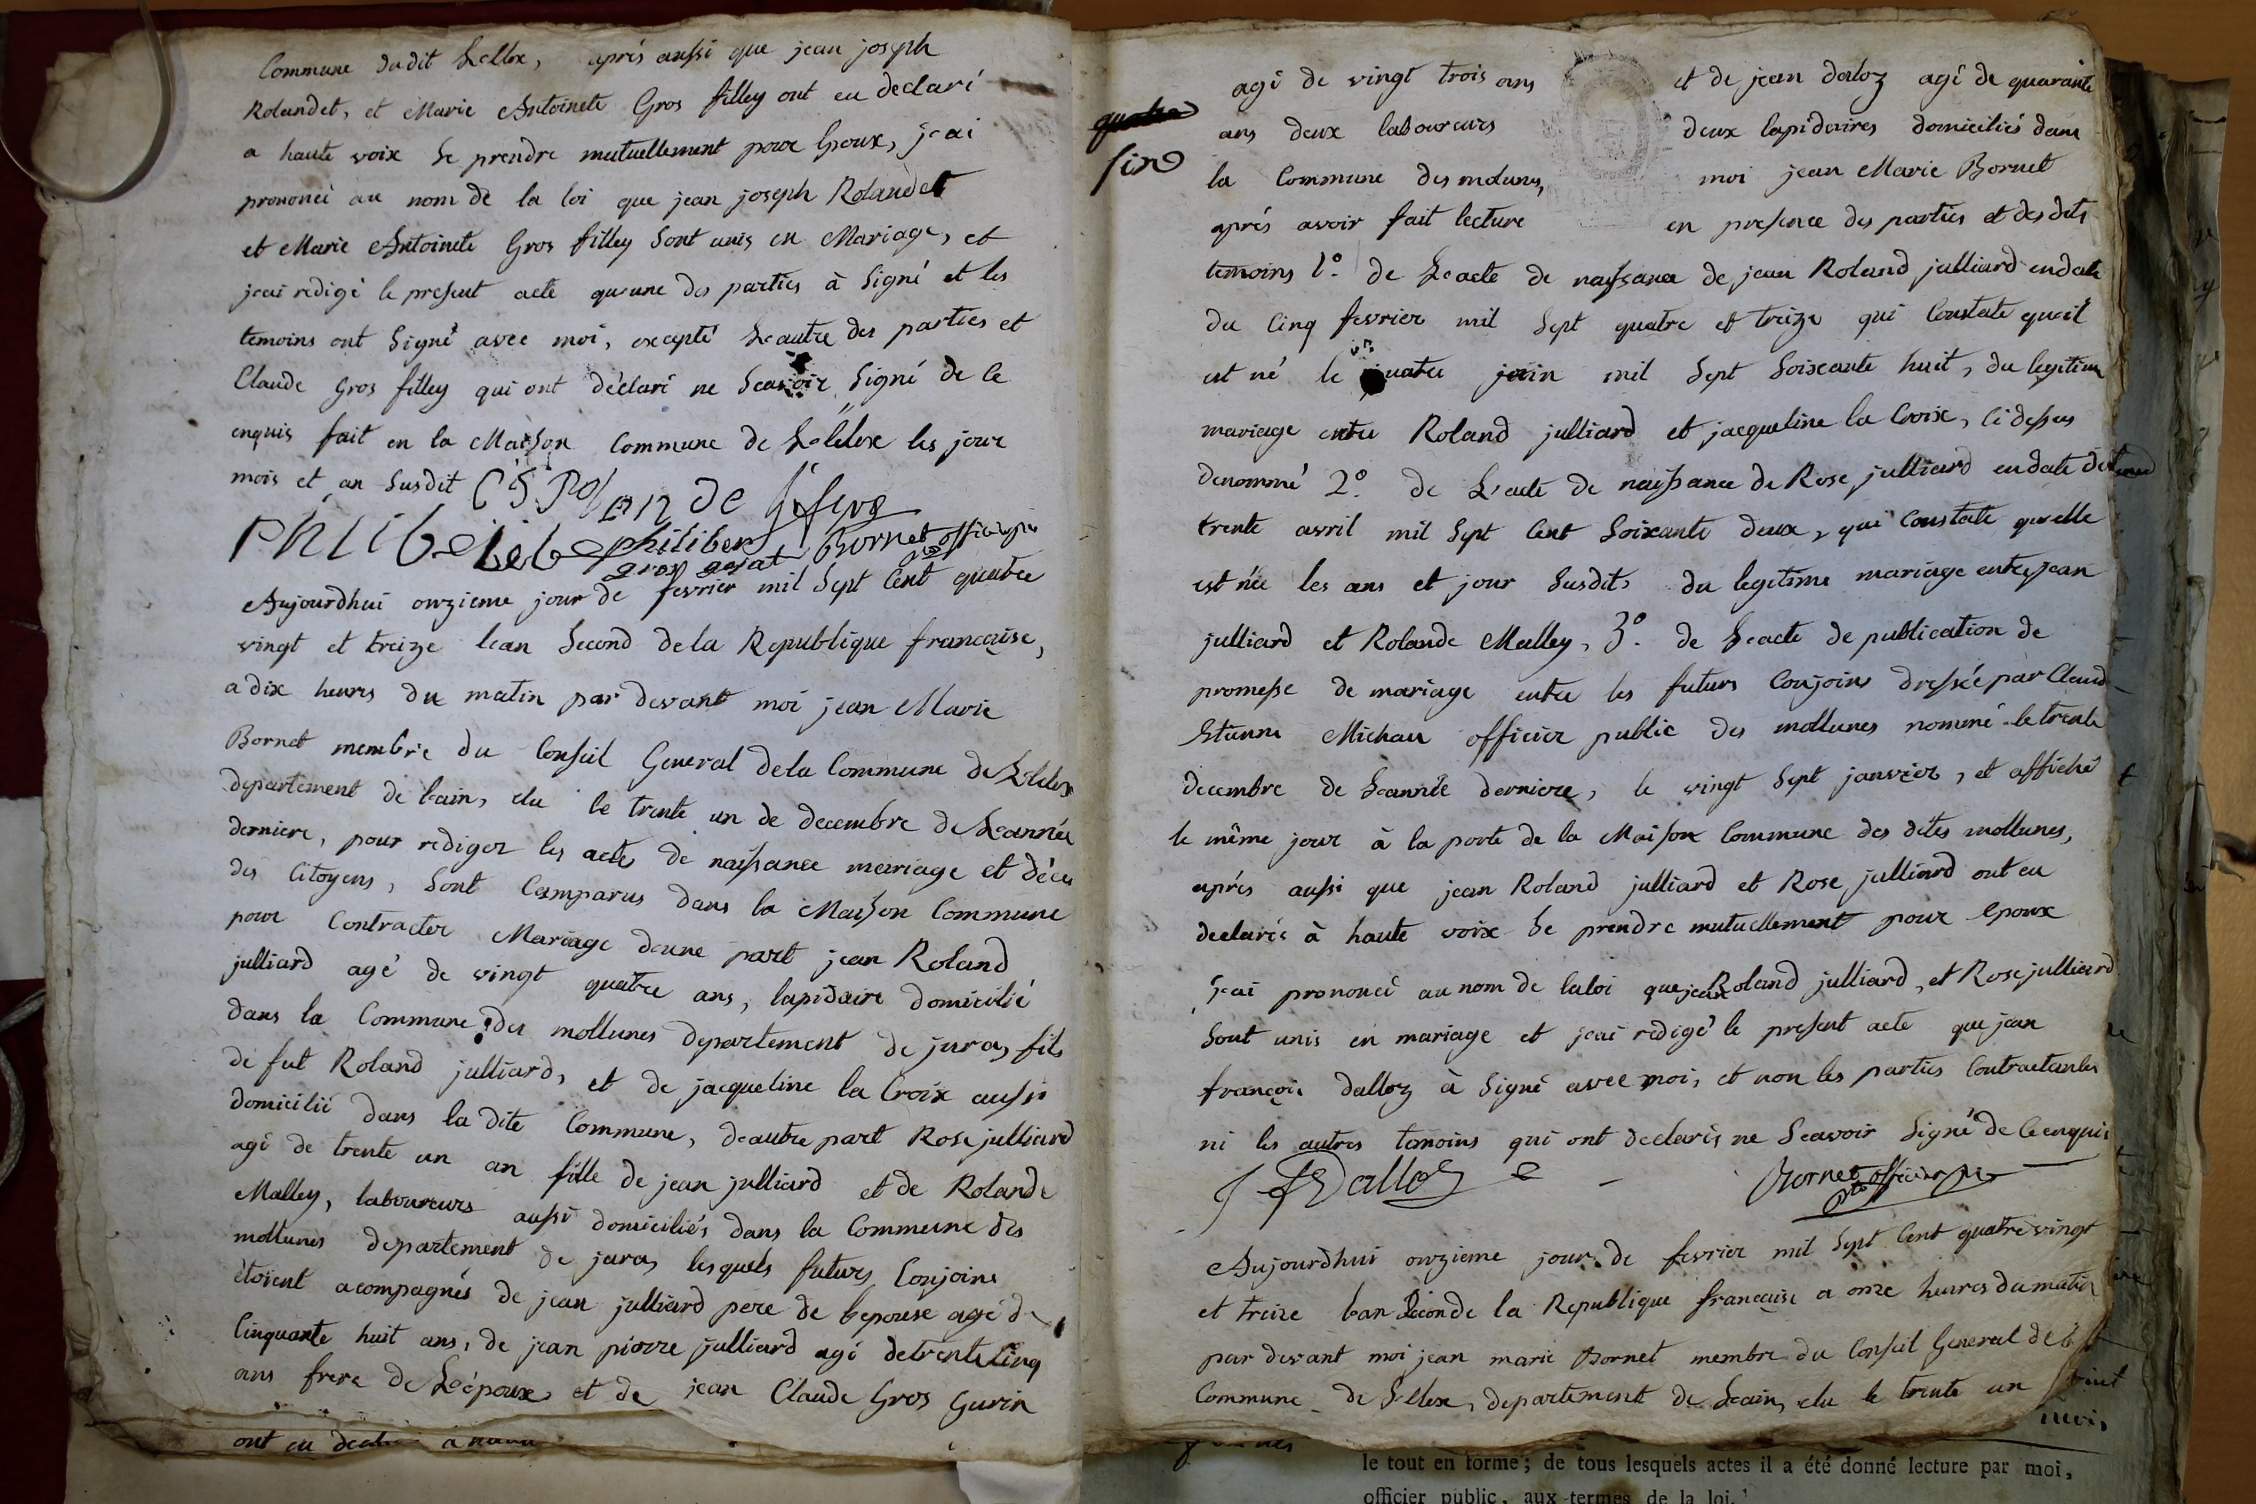 Commune dudit Lellex, aprés aussi que jean joseph
Rolandet, et Marie Antoinete Gros filley ont eu declaré
a haute voix Se prendre mutuellement pour Epoux, jeai
prononcé au nom de la loi que jean joseph Rolandet
et Marie Antoinete Gros filley Sont unis en Mariage, et
jeai redigé le present acte queune des parties à Signé et les
temoins ont Signé avec moi, excepté Leautre des parties et
Claude Gros filley qui ont déclaré ne Seavoir Signé de Ce
enquis fait en la Maison Commune de Lellex les jour
mois et an Susdit
philiber
gros gojat Bornet officier
Aujourdhui onzieme jour de fevrier mil Sept Cent quatre
vingt et treize lean Second de la Republique francaise,
a dix heures du matin par devant moi jean Marie
Bornet membre du Conseil General dela Commune de Lellex
departement de leain, elu le trente un de decembre de Leannée
derniere, pour rediger les actes de naissance mariage et décés
des Citoyens, Sont Comparus dans la Maison Commune
pour Contracter Mariage deune part jean Roland
julliard agé de vingt quatre ans, lapidaire domicilié
dans la Commune des mollunes departement de jura, fils
de fut Roland julliard, et de jacqueline la Croix aussi
domicilié dans la dite Commune, deautre part Rose julliard
agé de trente un an fille de jean julliard et de Rolande
Malley, laboureurs aussi domiciliés dans la Commune des
mollunes departement de jura, lesquels futurs Conjoins
étoient acompagnés de jean julliard pere de lepouse agé de
Cinquante huit ans, de jean pierre julliard agé detrente Cinq
ans frere de Leépoux, et de jean Claude Gros Gurin
ont eu
quatre
six
agé de vingt trois ans et de jean daloz agé de quarante
ans deux laboureurs deux lapidaires domiciliés dans
la Commune des molunes, moi jean Marie Bornet
aprés avoir fait lecture en presence des parties et des dits
temoins 1º. de Leacte de naissance de jean Roland julliard endate
du Cinq fevrier mil Sept quatre et treize qui Constate queil
est né le quatre juin mil Sept Soixante huit, du legitime
mariage entre Roland julliard et jacqueline la Croix, Ci dessus
denommé 2º. de L'acte de naissance de Rose julliard en date de
trente avril mil Sept Cent Soixante deux, qui Constate quelle
est née les ans et jour Susdits du legitime mariage entre jean
julliard et Rolande Malley, 3º. de Leacte de publication de
promesse de mariage entre les futurs Conjoins dressée par Claud
Etienne Michau officier public des mollunes nommé le trente
decembre de Leannée derniere, le vingt Sept janvier, et affiché
le même jour à la porte de la Maison Commune des dites mollunes,
aprés aussi que jean Roland julliard et Rose julliard ont eu
declarés à haute voix Se prendre mutuellement pour Epoux
jeai prononcé au nom de laloi que jean Roland julliard, et Rose julliard
Sont unis en mariage et jeai redigé le present acte que jean
françois dalloz à Signé avec moi, et non les parties Contractantes
ni les autres temoins qui ont declarés ne Seavoir Signé de Ceenquis
J f Dalloz Bornet officier
Aujourdhui onzieme jour de fevrier mil Sept Cent quatre vingt
et treize lean Second de la Republique francaise a onze heures du matin
par devant moi jean marie Bornet membre du Conseil General de la
Commune de Lellex, departement de Leain, elu le trente un
mois,
le tout en forme ; de tous lesquels actes il a été donné lecture par moi,
officier public, aux termes de la loi.